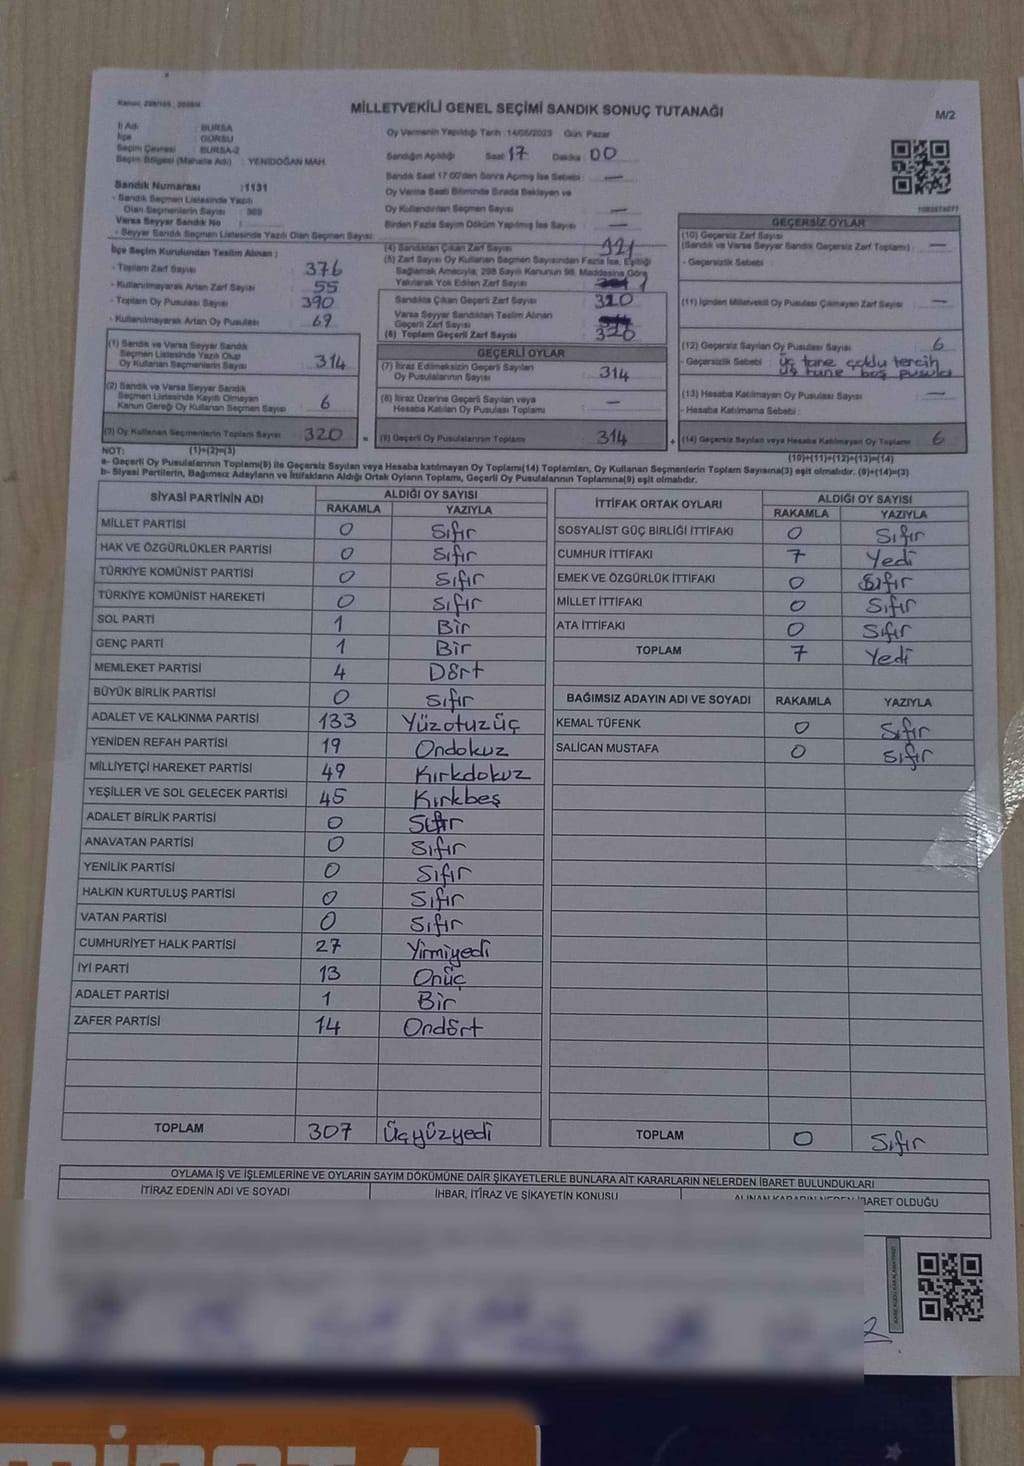 MİLLETVEKİLİ GENEL SEÇİMİ SANDIK SONUÇ TUTANAĞI
M/2
İl Adı : BURSA
İlçe : GÜRSU
Seçim Çevresi : BURSA-2
Seçim Bölgesi (Mahalle Adı) : YENİDOĞAN MAH.
Sandık Numarası :1131
- Sandık Seçmen Listesinde Yazılı
Olan Seçmenlerin Sayısı : 369
Varsa Seyyar Sandık No :
- Seyyar Sandık Seçmen Listesinde Yazılı Olan Seçmen Sayısı:
Oy Vermenin Yapıldığı Tarih :14/05/2023 Gün: Pazar
Sandığın Açıldığı Saat: 17 Dakika: 00
Sandık Saat 17:00'den Sonra Açılmış İse Sebebi : —
Oy Verme Saati Bitiminde Sırada Bekleyen ve
Oy Kullandırılan Seçmen Sayısı —
Birden Fazla Sayım Döküm Yapılmış İse Sayısı : —
İlçe Seçim Kurulundan Teslim Alınan ;
- Toplam Zarf Sayısı 376
- Kullanılmayarak Artan Zarf Sayısı : 55
- Toplam Oy Pusulası Sayısı 390
- Kullanılmayarak Artan Oy Pusulası : 69
(1) Sandık ve Varsa Seyyar Sandık
Seçmen Listesinde Yazılı Olup
Oy Kullanan Seçmen Sayısı : 314
(2) Sandık ve Varsa Seyyar Sandık
Seçmen Listesinde Kayıtlı Olmayan
Kanun Gereği Oy Kullanan Seçmen Sayısı : 6
(3) Oy Kullanan Seçmenlerin Toplam Sayısı : 320
(1)+(2)=(3)
(4) Sandıktan Çıkan Zarf Sayısı : 321
(5) Zarf Sayısı Oy Kullanan Seçmen Sayısından Fazla İse, Eşitliği
Sağlamak Amacıyla, 298 Sayılı Kanunun 98. Maddesine Göre
Yakılarak Yok Edilen Zarf Sayısı : 1
Sandıkta Çıkan Geçerli Zarf Sayısı : 320
Varsa Seyyar Sandıktan Teslim Alınan
Geçerli Zarf Sayısı
(6) Toplam Geçerli Zarf Sayısı : 320
GEÇERLİ OYLAR
(7) İtiraz Edilmeksizin Geçerli Sayılan
Oy Pusulalarının Sayısı : 314
(8) İtiraz Üzerine Geçerli Sayılan veya
Hesaba Katılan Oy Pusulası Toplamı : —
(9) Geçerli Oy Pusulalarının Toplamı : 314
GEÇERSİZ OYLAR
(10) Geçersiz Zarf Sayısı
(Sandık ve Varsa Seyyar Sandık Geçersiz Zarf Toplamı) : —
- Geçersizlik Sebebi :
(11) İçinden Milletvekili Oy Pusulası Çıkmayan Zarf Sayısı : —
(12) Geçersiz Sayılan Oy Pusulası Sayısı : 6
- Geçersizlik Sebebi : üç tane çoklu tercih
üç tane boş pusula
(13) Hesaba Katılmayan Oy Pusulası Sayısı : —
- Hesaba Katılmama Sebebi :
(14) Geçersiz Sayılan veya Hesaba Katılmayan Oy Toplamı : 6
(10)+(11)+(12)+(13)=(14)
NOT:
a- Geçerli Oy Pusulalarının Toplamı(9) ile Geçersiz Sayılan veya Hesaba katılmayan Oy Toplamı(14) Toplamları, Oy Kullanan Seçmenlerin Toplam Sayısına(3) eşit olmalıdır. (9)+(14)=(3)
b- Siyasi Partilerin, Bağımsız Adayların ve İttifakların Aldığı Ortak Oyların Toplamı, Geçerli Oy Pusulalarının Toplamına(9) eşit olmalıdır.
SİYASİ PARTİNİN ADI ALDIĞI OY SAYISI
RAKAMLA YAZIYLA
MİLLET PARTİSİ 0 Sıfır
HAK VE ÖZGÜRLÜKLER PARTİSİ 0 Sıfır
TÜRKİYE KOMÜNİST PARTİSİ 0 Sıfır
TÜRKİYE KOMÜNİST HAREKETİ 0 Sıfır
SOL PARTİ 1 Bir
GENÇ PARTİ 1 Bir
MEMLEKET PARTİSİ 4 Dört
BÜYÜK BİRLİK PARTİSİ 0 Sıfır
ADALET VE KALKINMA PARTİSİ 133 Yüzotuzüç
YENİDEN REFAH PARTİSİ 19 Ondokuz
MİLLİYETÇİ HAREKET PARTİSİ 49 Kırkdokuz
YEŞİLLER VE SOL GELECEK PARTİSİ 45 Kırkbeş
ADALET BİRLİK PARTİSİ 0 Sıfır
ANAVATAN PARTİSİ 0 Sıfır
YENİLİK PARTİSİ 0 Sıfır
HALKIN KURTULUŞ PARTİSİ 0 Sıfır
VATAN PARTİSİ 0 Sıfır
CUMHURİYET HALK PARTİSİ 27 Yirmiyedi
İYİ PARTİ 13 Onüç
ADALET PARTİSİ 1 Bir
ZAFER PARTİSİ 14 Ondört
TOPLAM 307 Üçyüzyedi
İTTİFAK ORTAK OYLARI ALDIĞI OY SAYISI
RAKAMLA YAZIYLA
SOSYALİST GÜÇ BİRLİĞİ İTTİFAKI 0 Sıfır
CUMHUR İTTİFAKI 7 Yedi
EMEK VE ÖZGÜRLÜK İTTİFAKI 0 Sıfır
MİLLET İTTİFAKI 0 Sıfır
ATA İTTİFAKI 0 Sıfır
TOPLAM 7 Yedi
BAĞIMSIZ ADAYIN ADI VE SOYADI RAKAMLA YAZIYLA
KEMAL TÜFENK 0 Sıfır
SALİCAN MUSTAFA 0 Sıfır
TOPLAM 0 Sıfır
OYLAMA İŞ VE İŞLEMLERİNE VE OYLARIN SAYIM DÖKÜMÜNE DAİR ŞİKAYETLERLE BUNLARA AİT KARARLARIN NELERDEN İBARET BULUNDUKLARI
İTİRAZ EDENİN ADI VE SOYADI İHBAR, İTİRAZ VE ŞİKAYETİN KONUSU ALINAN KARARIN NEDEN İBARET OLDUĞU